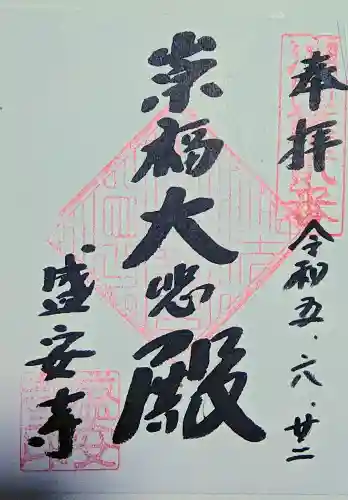 奉拝
令和五、六、廿二
崇福大悲殿
盛安寺